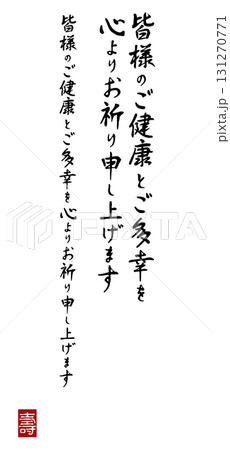 皆様のご健康とご多幸を
心よりお祈り申し上げます
皆様のご健康とご多幸を心よりお祈り申し上げます
壽
PIXTA
131270771